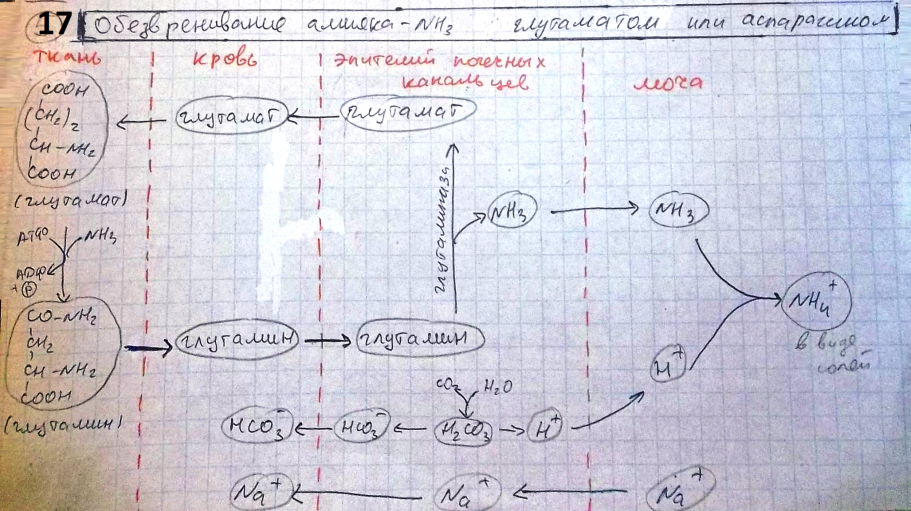 17 Обезвреживание аммиака - NH3 глутаматом или аспарагином
ткань кровь эпителий почечных канальцев моча
COOH
(CH2)2
CH-NH2
COOH
(глутамат)
глутамат
глутамат
АТФ
NH3
АДФ
+ Ⓟ
глутаминаза
NH3
NH3
CO-NH2
CH2
CH-NH2
COOH
(глутамин)
глутамин
глутамин
H+
NH4+
в виде
солей
CO2 H2O
HCO3-
HCO3-
H2CO3
H+
Na+
Na+
Na+